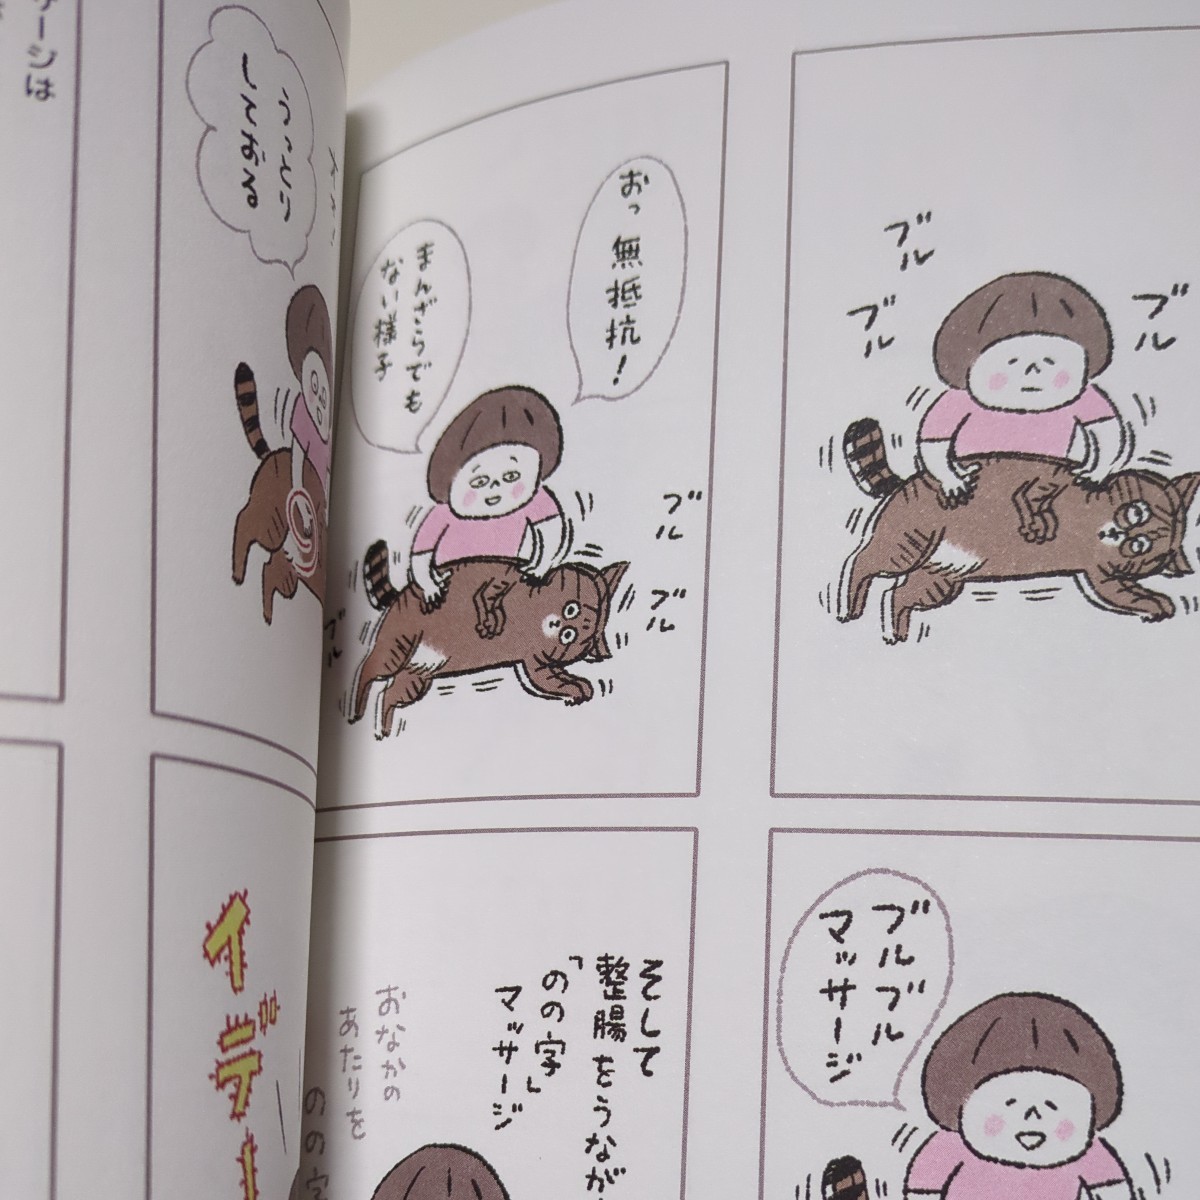 ブル
ブル
ブル
おっ 無抵抗！
まんざらでも
ない様子
ブル
ブル
ブル
ブルブル
マッサージ
そして
整腸をうなが
「のの字」
マッサージ
おなかの
あたりを
のの字
うっとり
しておる
イデー
ージは